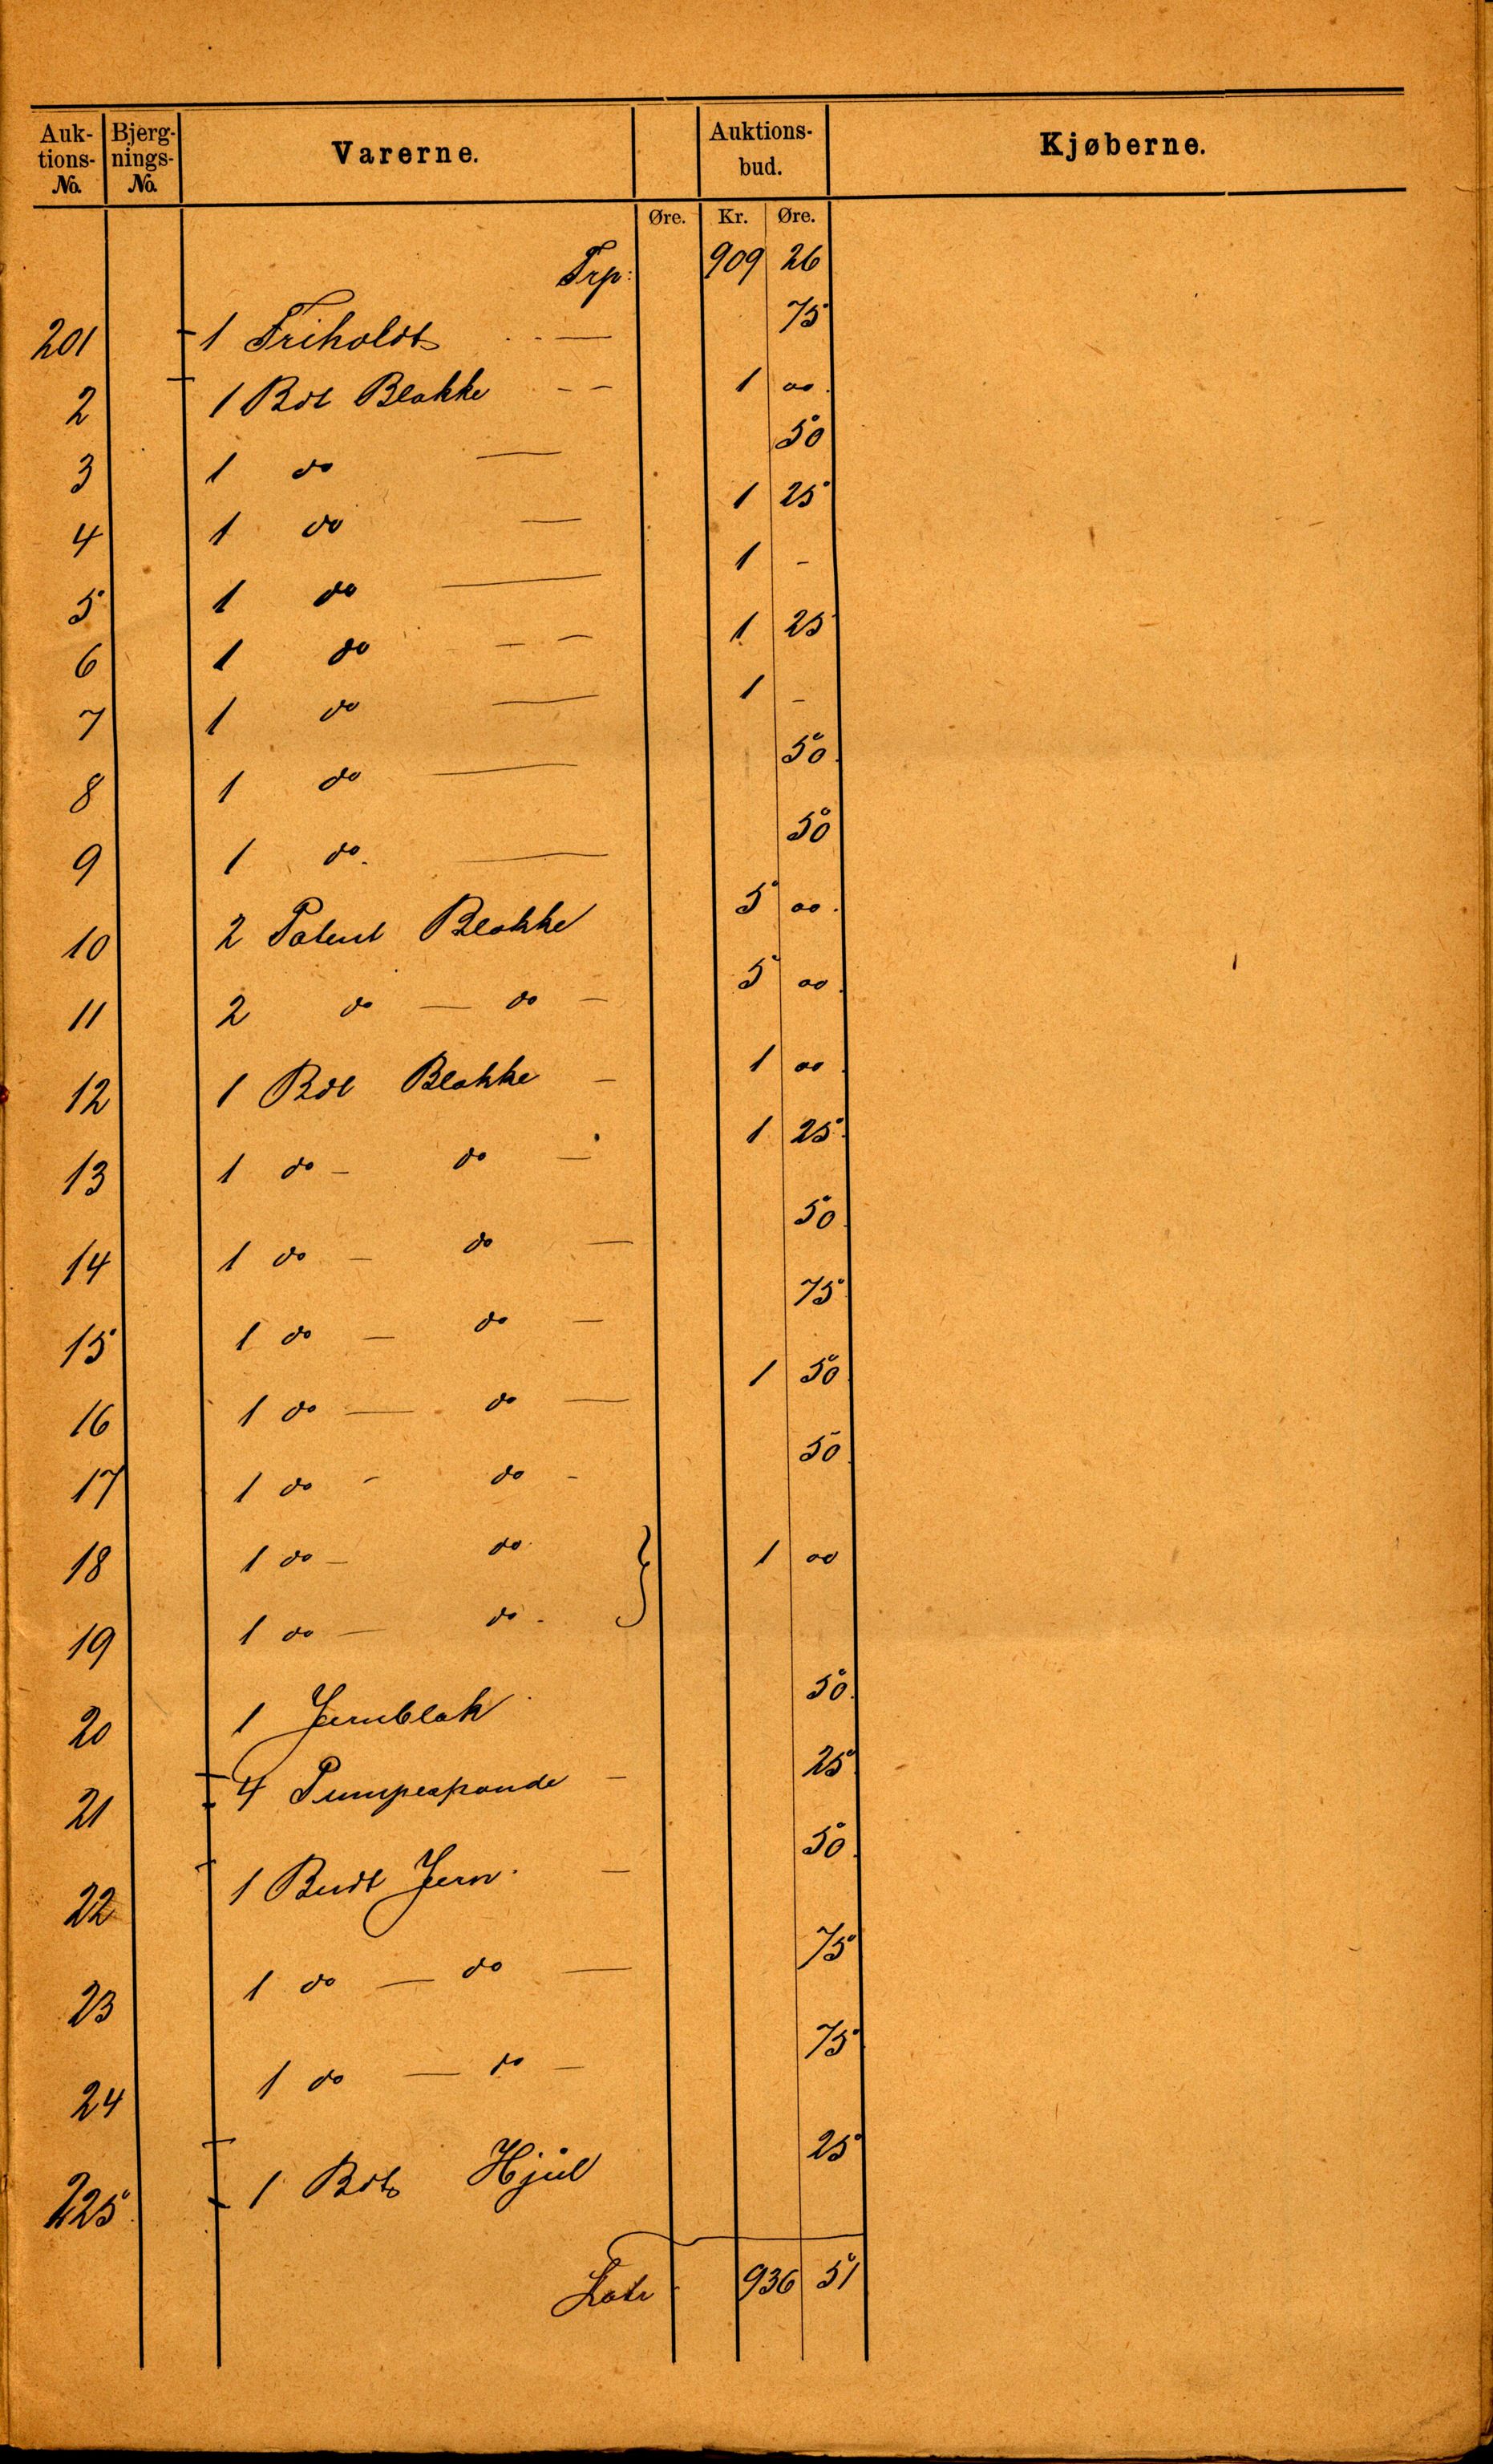 Auk- Bjerg-
tions- nings- Varerne. Auktions- Kjøberne.
No. No. bud.
Øre. Kr. Øre.
Trp: 909 26
201 1 Friholdt 75
2 1 Bdt Blokke 1 00
3 1 do 50
4 1 do 1 25
5 1 do 1 -
6 1 do 1 25
7 1 do 1 -
8 1 do 50
9 1 do 50
10 2 Patent Blokke 5 00
11 2 do — do 5 00
12 1 Bdt Blokke 1 00
13 1 do - do 1 25
14 1 do - do 50
15 1 do - do 75
16 1 do — do 1 50
17 1 do - do 50
18 1 do - do } 1 00
19 1 do - do
20 1 Jernblok 50
21 4 Pumpespande 25
22 1 Bundt Jern 50
23 1 do — do 75
24 1 do — do 75
225 1 Bdt Hjul 25
Latr 936 51